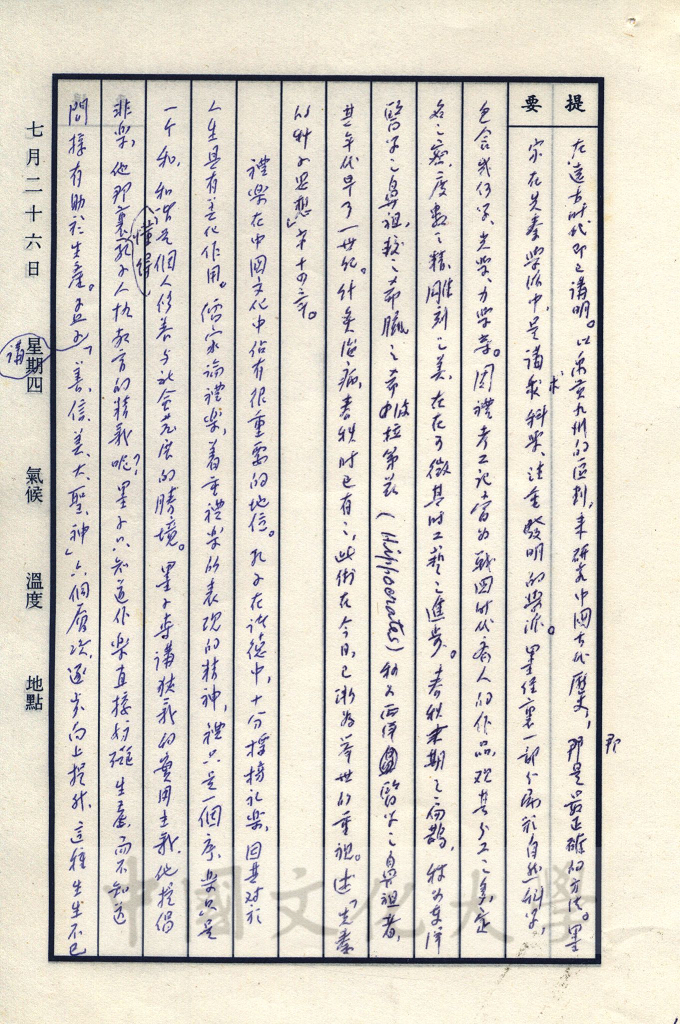 提要
在遠古時代即已講明。以禹貢九州的區劃，來研究中國古代歷史，那是最正確的方法。墨
家在先秦學派中，是講求科學、注重發明的學派。墨經裏一部分屬於自然科學，
包含幾何學、光學、力學等。周禮考工記當為戰國時代齊人的作品，觀其分工之多，定
名之密，度數之精，雕刻之美，在在可徵其時工藝之進步。春秋末期之扁鵲，称為東洋
醫学之鼻祖，較之希臘之希波拉第斯（Hippocrates）称为西洋醫学之鼻祖者，
其年代早了一世紀。針灸治病，春秋时已有之，此術在今日，已漸為举世所重視。述「先秦
的科学思想」第十四章。
禮樂在中國文化中佔有很重要的地位。孔子在諸德中，十分推檮礼樂，因其对於
人生具有美化作用。儒家論禮樂，着重禮樂所表現的精神，禮只是一個序，樂只是
一个和，和諧是個人修養与社會發展的勝境。墨子專講狹義的實用主義，他提倡
非樂，他那裏懂得孔子人執教育的精義呢？墨子只知道作樂直接妨礙生產，而不知道
間接有助於生產。孟子講「善、信、美、大、聖、神」六個層次，逐步向上提升，這種生生不已
七月二十六日 星期四 氣候 溫度 地點
中國文化大學